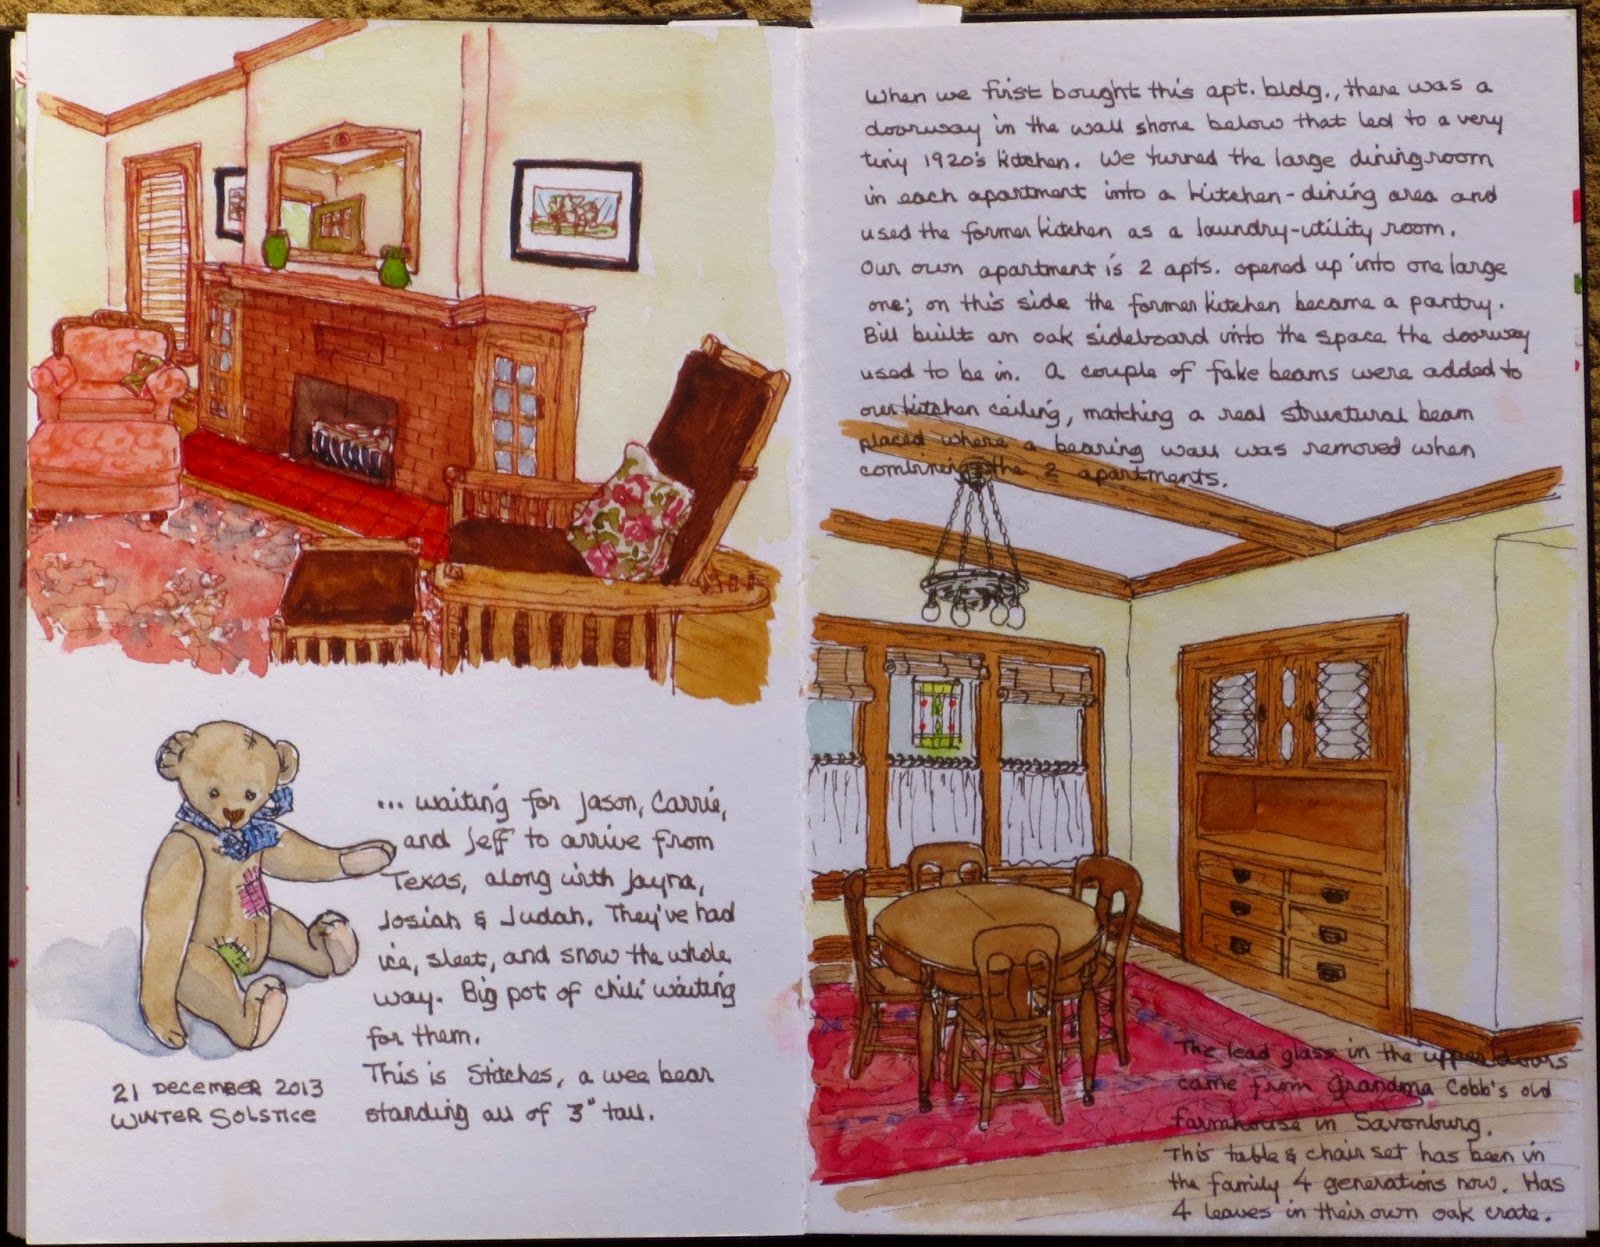 ... waiting for Jason, Carrie,
and Jeff to arrive from
Texas, along with Jayna,
Josiah & Judah. They've had
ice, sleet, and snow the whole
way. Big pot of chili waiting
for them.
This is Stitches, a wee bear
standing all of 3" tall.
21 DECEMBER 2013
WINTER SOLSTICE
When we first bought this apt. bldg., there was a
doorway in the wall shone below that led to a very
tiny 1920's kitchen. We turned the large diningroom
in each apartment into a kitchen-dining area and
used the former kitchen as a laundry-utility room.
Our own apartment is 2 apts. opened up into one large
one; on this side the former kitchen became a pantry.
Bill built an oak sideboard into the space the doorway
used to be in. A couple of fake beams were added to
our kitchen ceiling, matching a real structural beam
placed where a bearing wall was removed when
combining the 2 apartments.
The lead glass in the upper doors
came from Grandma Cobb's old
farmhouse in Savonburg.
This table & chair set has been in
the family 4 generations now. Has
4 leaves in their own oak crate.